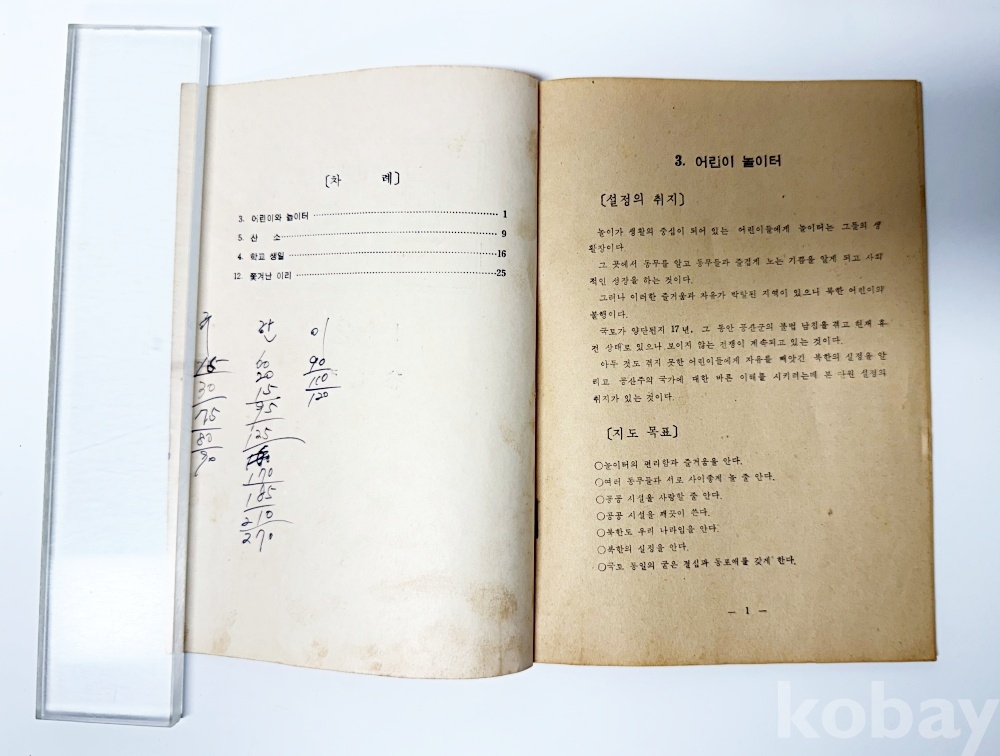 〔차 례〕
3. 어린이와 놀이터 1
5. 산 소 9
4. 학교 생일 16
12. 쫓겨난 이리 25
이
90
20
110
15
120
30
95
75
125
80
90
170
185
210
270
3. 어린이 놀이터
〔설정의 취지〕
놀이가 생활의 중심이 되어 있는 어린이들에게 놀이터는 그들의 생
활장이다.
그 곳에서 동무를 알고 동무들과 즐겁게 노는 기쁨을 알게 되고 사회
적인 성장을 하는 것이다.
그러나 이러한 즐거움과 자유가 박탈된 지역이 있으니 북한 어린이의
불행이다.
국토가 양단된지 17년, 그 동안 공산군의 불법 남침을 겪고 현재 휴
전 상태로 있으나 보이지 않는 전쟁이 계속되고 있는 것이다.
아무 것도 겪지 못한 어린이들에게 자유를 빼앗긴 북한의 실정을 알
리고 공산주의 국가에 대한 바른 이해를 시키려는데 본 단원 설정의
취지가 있는 것이다.
〔지도 목표〕
○놀이터의 편리함과 즐거움을 안다.
○여러 동무들과 서로 사이좋게 놀 줄 안다.
○공공 시설을 사랑할 줄 안다.
○공공 시설을 깨끗이 쓴다.
○북한도 우리 나라임을 안다.
○북한의 실정을 안다.
○국토 통일의 굳은 결심과 동포애를 갖게 한다.
— 1 —
kobay